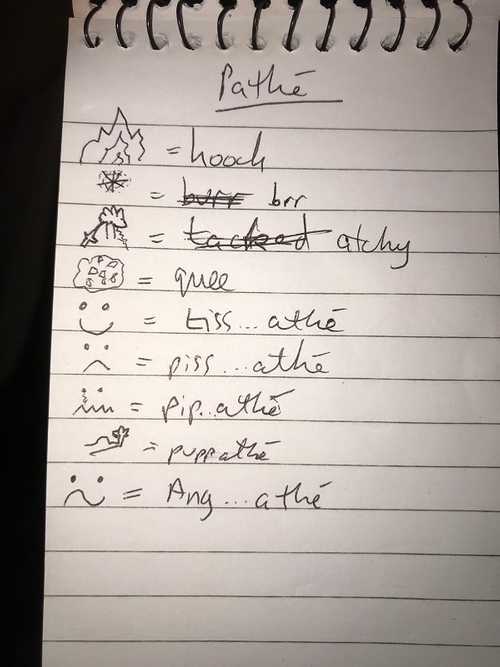 Pathé
= hooch
= burr brr
= tacked atchy
= quee
= tiss...athé
= piss...athé
= pip..athé
= puppathé
= Ang...athé